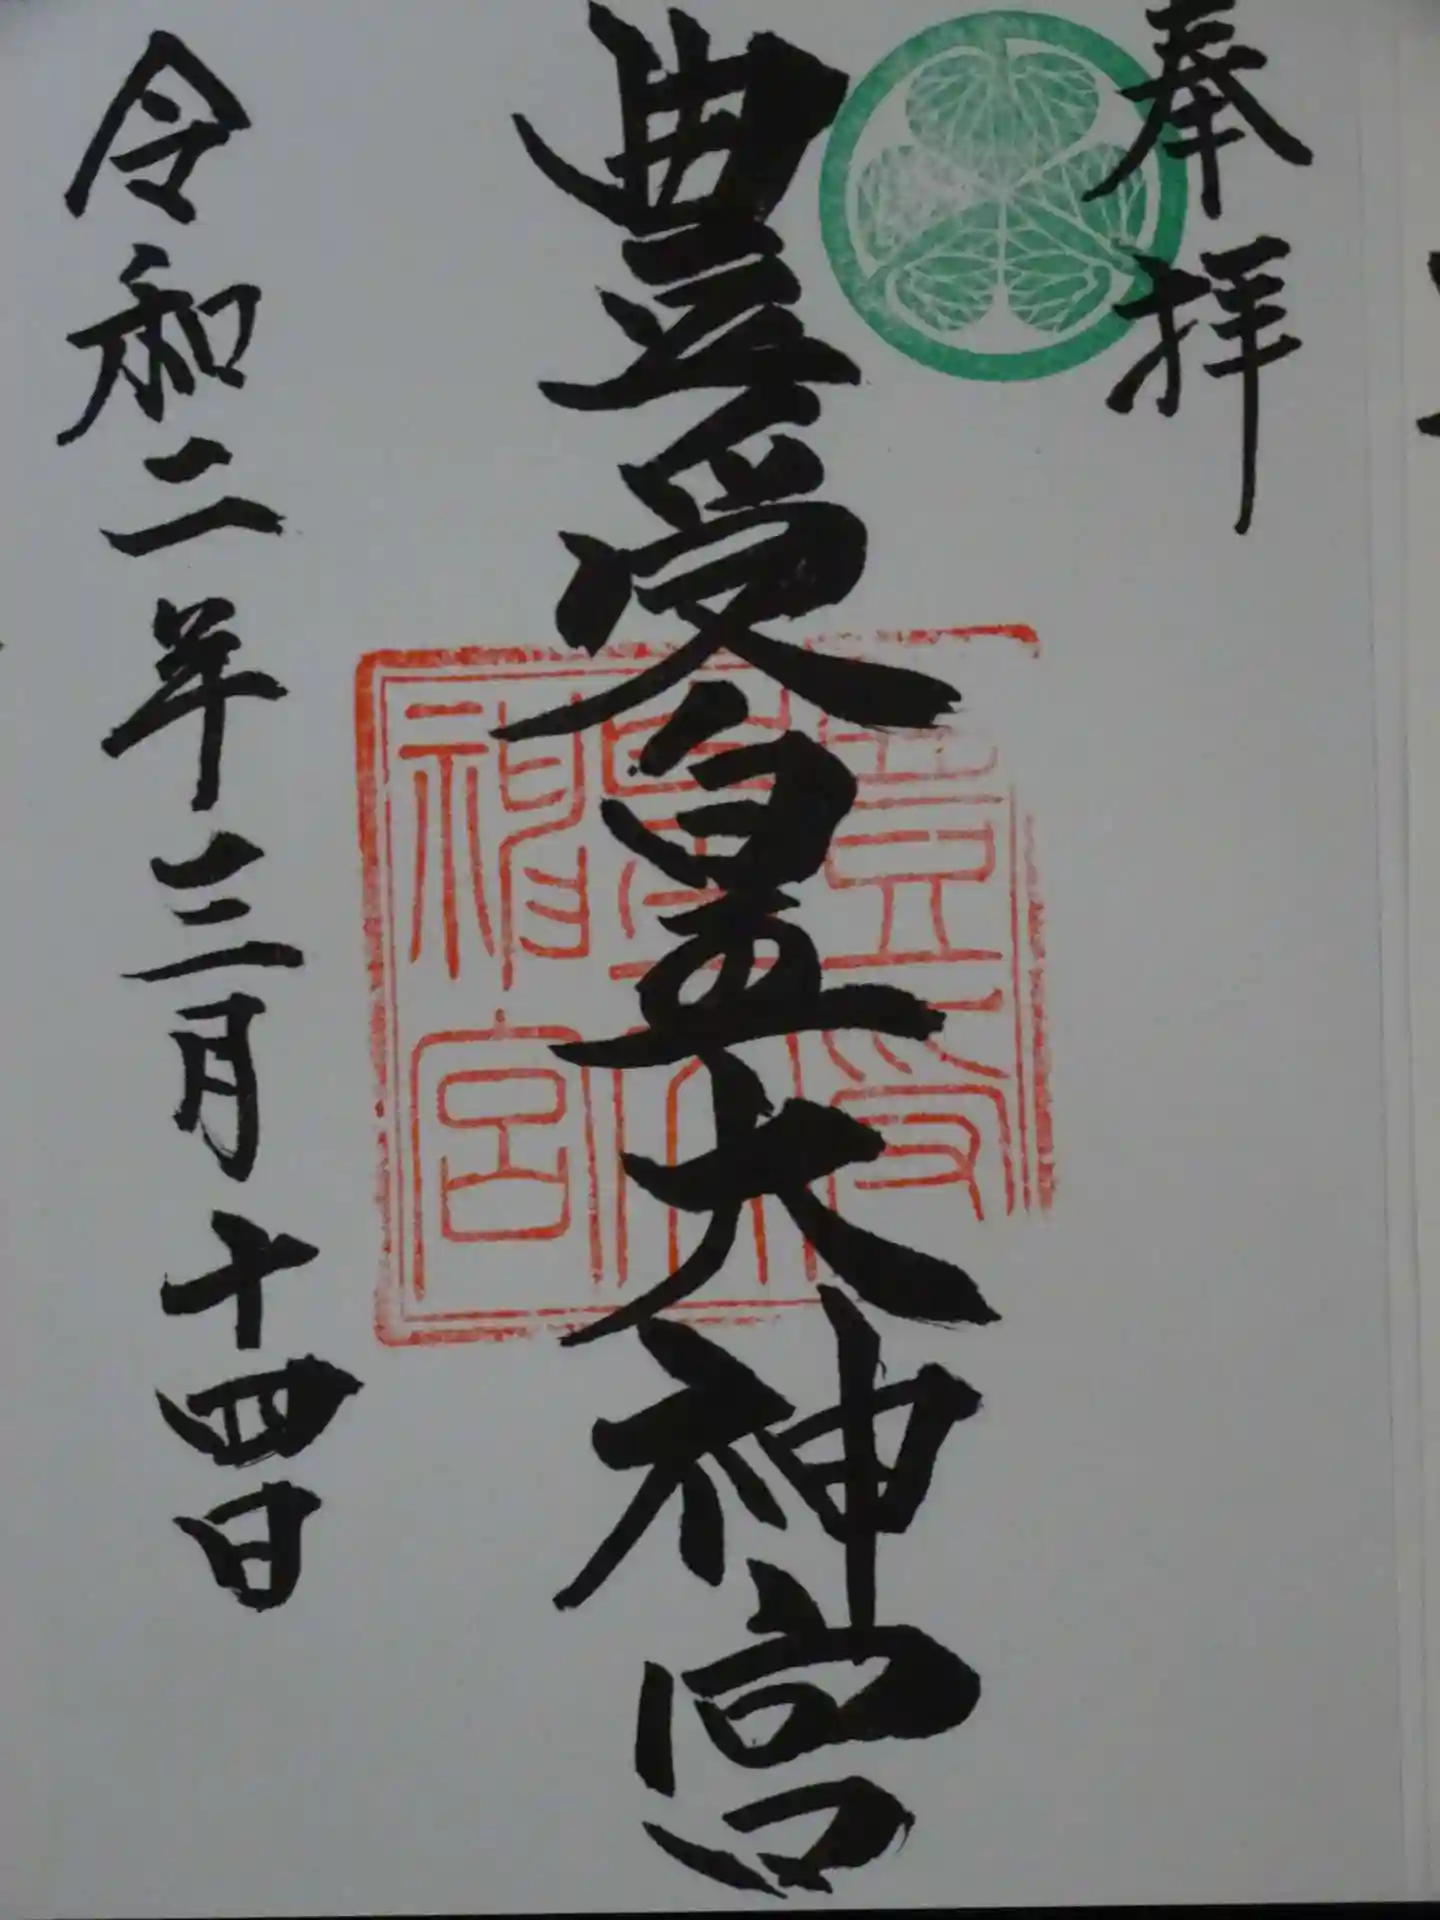 奉拝
豊受皇大神宮
豊受
皇大
神宮
令和二年三月十四日